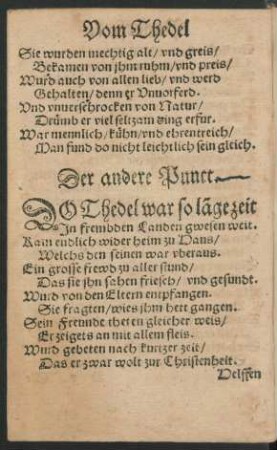 Vom Thedel
Sie wurden mechtig alt/ vnd greis/
Bekamen von jhm ruhm/ vnd preis/
Wurd auch von allen lieb/ vnd werd
Gehalten/ denn er Vnuorferd.
Vnd vnuerschrocken von Natur/
Drumb er viel seltzam ding erfur.
War mennlich/ kühn/ vnd ehrentreich/
Man fund do nicht leichtlich sein gleich.
Der andere Punct.
DO Thedel war so lãge zeit
In frembden Landen gwesen weit.
Kam endlich wider heim zu Haus/
Welchs den seinen war vberaus.
Ein grosse frewd zu aller stund/
Das sie jhn sahen friesch/ vnd gesundt.
Wurd von den Eltern entpfangen.
Sie fragten/ wies jhm hett gangen.
Sein Freunde theten gleicher weis/
Erzeigets an mit allem fleis.
Wurd gebeten nach kurtzer zeit/
Das er zwar wolt zur Christenheit.
Helffen